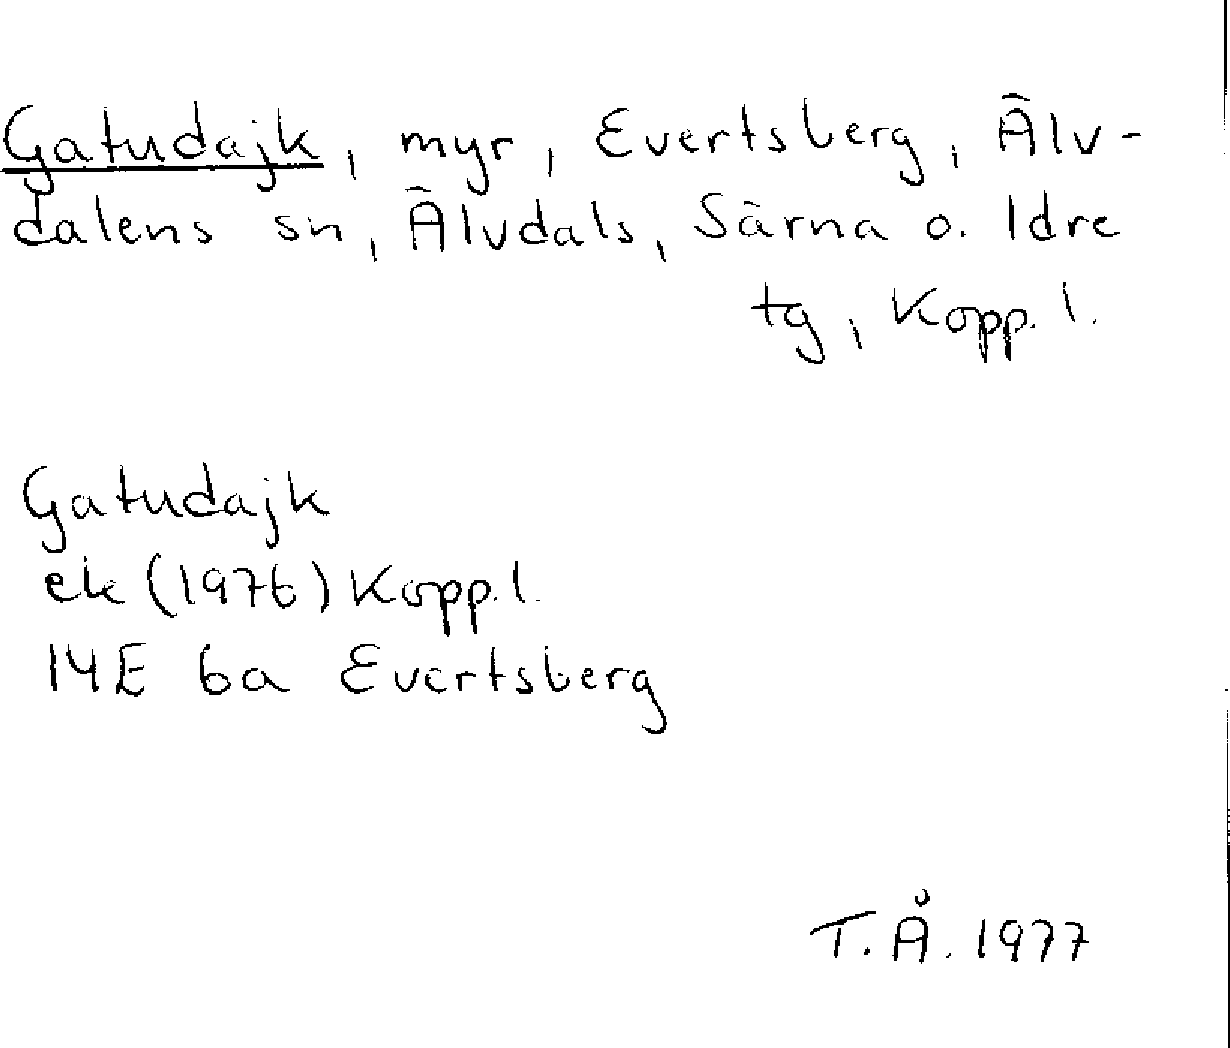 Gatudajk, myr, Evertsberg, Älv-
dalens sn, Älvdals, Särna o. Idre
tg, Kopp. l.
Gatudajk
ek (1976) Kopp. l.
14E 6a Evertsberg
T.Å. 1977